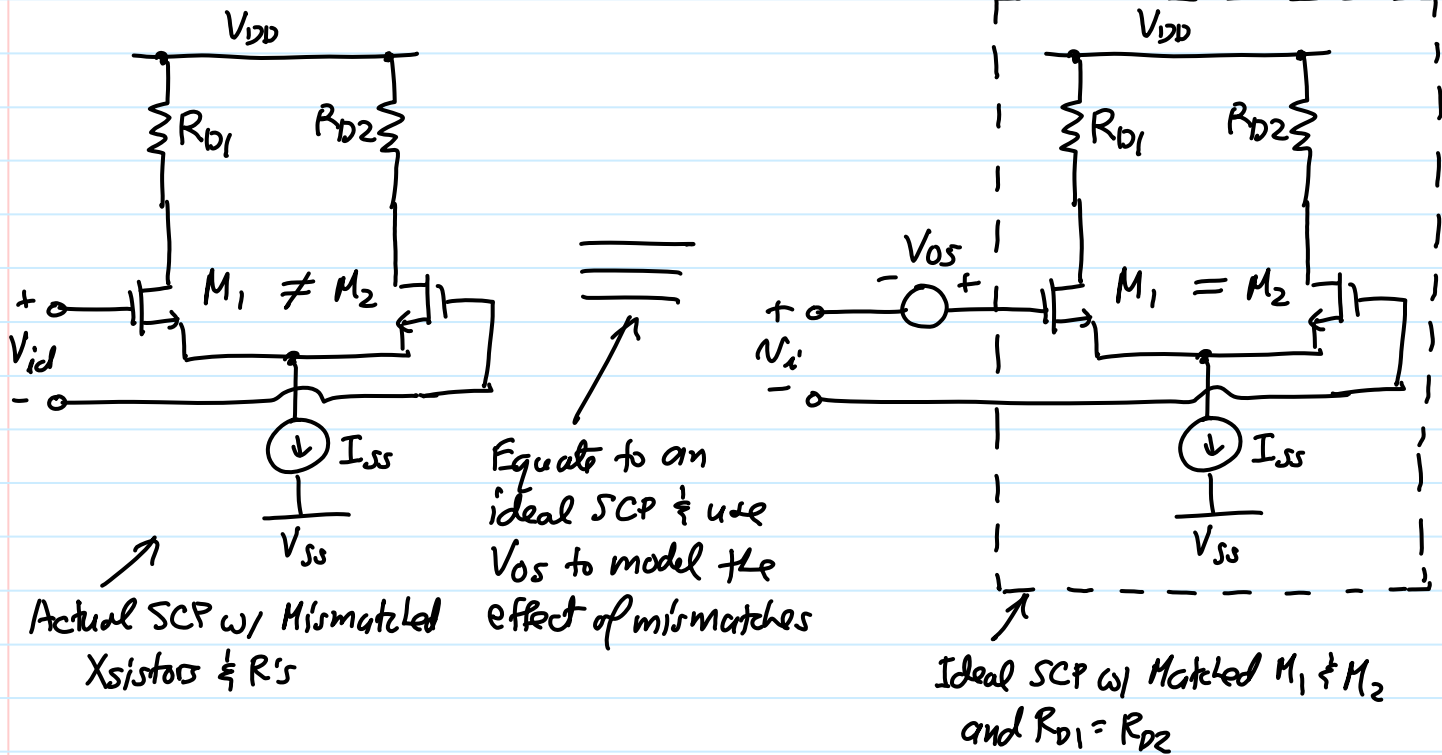 V_DD
R_D1 R_D2
M_1 ≠ M_2
+
V_id
-
I_SS
V_SS
Actual SCP w/ Mismatched
Xsistors & R's
≡
Equate to an
ideal SCP & use
V_OS to model the
effect of mismatches
V_DD
R_D1 R_D2
V_OS
- +
M_1 = M_2
+
v_i
-
I_SS
V_SS
Ideal SCP w/ Matched M_1 & M_2
and R_D1 = R_D2